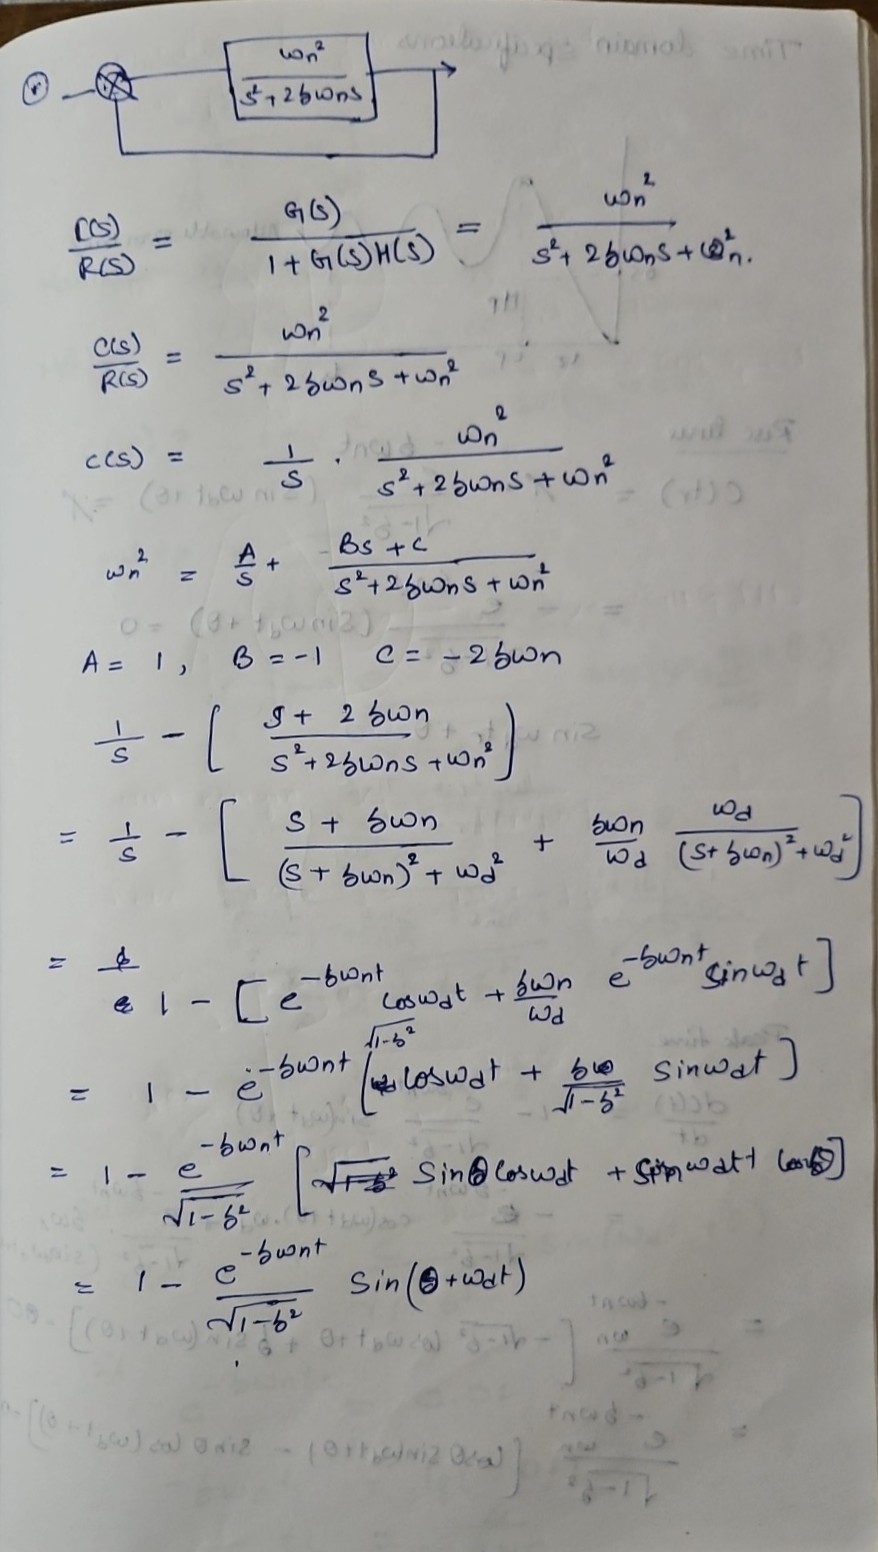 ωn²
r
s² + 2ζωns
C(s)/R(s) = G(s)/(1 + G(s)H(s)) = ωn²/(s² + 2ζωns + ωn²).
C(s)/R(s) = ωn²/(s² + 2ζωns + ωn²)
C(s) = 1/s · ωn²/(s² + 2ζωns + ωn²)
ωn² = A/s + (Bs + C)/(s² + 2ζωns + ωn²)
A = 1, B = -1 C = -2ζωn
1/s - [(s + 2ζωn)/(s² + 2ζωns + ωn²)]
= 1/s - [(s + ζωn)/((s + ζωn)² + ωd²) + ζωn/ωd ωd/((s + ζωn)² + ωd²)]
= 1 - [e^(-ζωnt) cosωdt + ζωn/ωd e^(-ζωnt) sinωdt]
= 1 - e^(-ζωnt) [√(1-ζ²) cosωdt + ζ/√(1-ζ²) sinωdt]
= 1 - e^(-ζωnt)/√(1-ζ²) [sinθ cosωdt + sinωdt cosθ]
= 1 - e^(-ζωnt)/√(1-ζ²) sin(θ + ωdt)